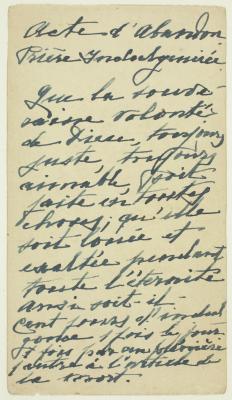 Acte d'Abandon
Prière Indulgenciée
Que la souve-
raine volonté
de Dieu, toujours
juste, toujours
aimable, soit
faite en toutes
choses; qu'elle
soit louée et
exaltée pendant
toute l'éternité
ainsi soit-il
Cent jours d'indul
gence 1 fois le jour
1 fois par an plénière
l'autre à l'article de
la mort.